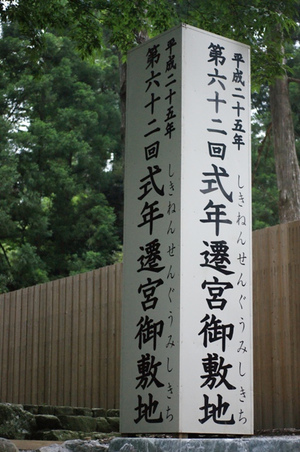 平成二十五年
第六十二回式年遷宮御敷地
しきねんせんぐうみしきち
平成二十五年
第六十二回式年遷宮御敷地
しきねんせんぐうみしきち